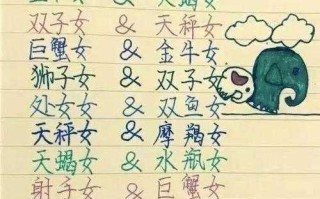 双子女 & 天秤女
巨蟹女 & 金牛女
狮子女 & 双子女
处女女 & 双鱼女
天秤女 & 摩羯女
天蝎女 & 水瓶女
射手女 & 巨蟹女